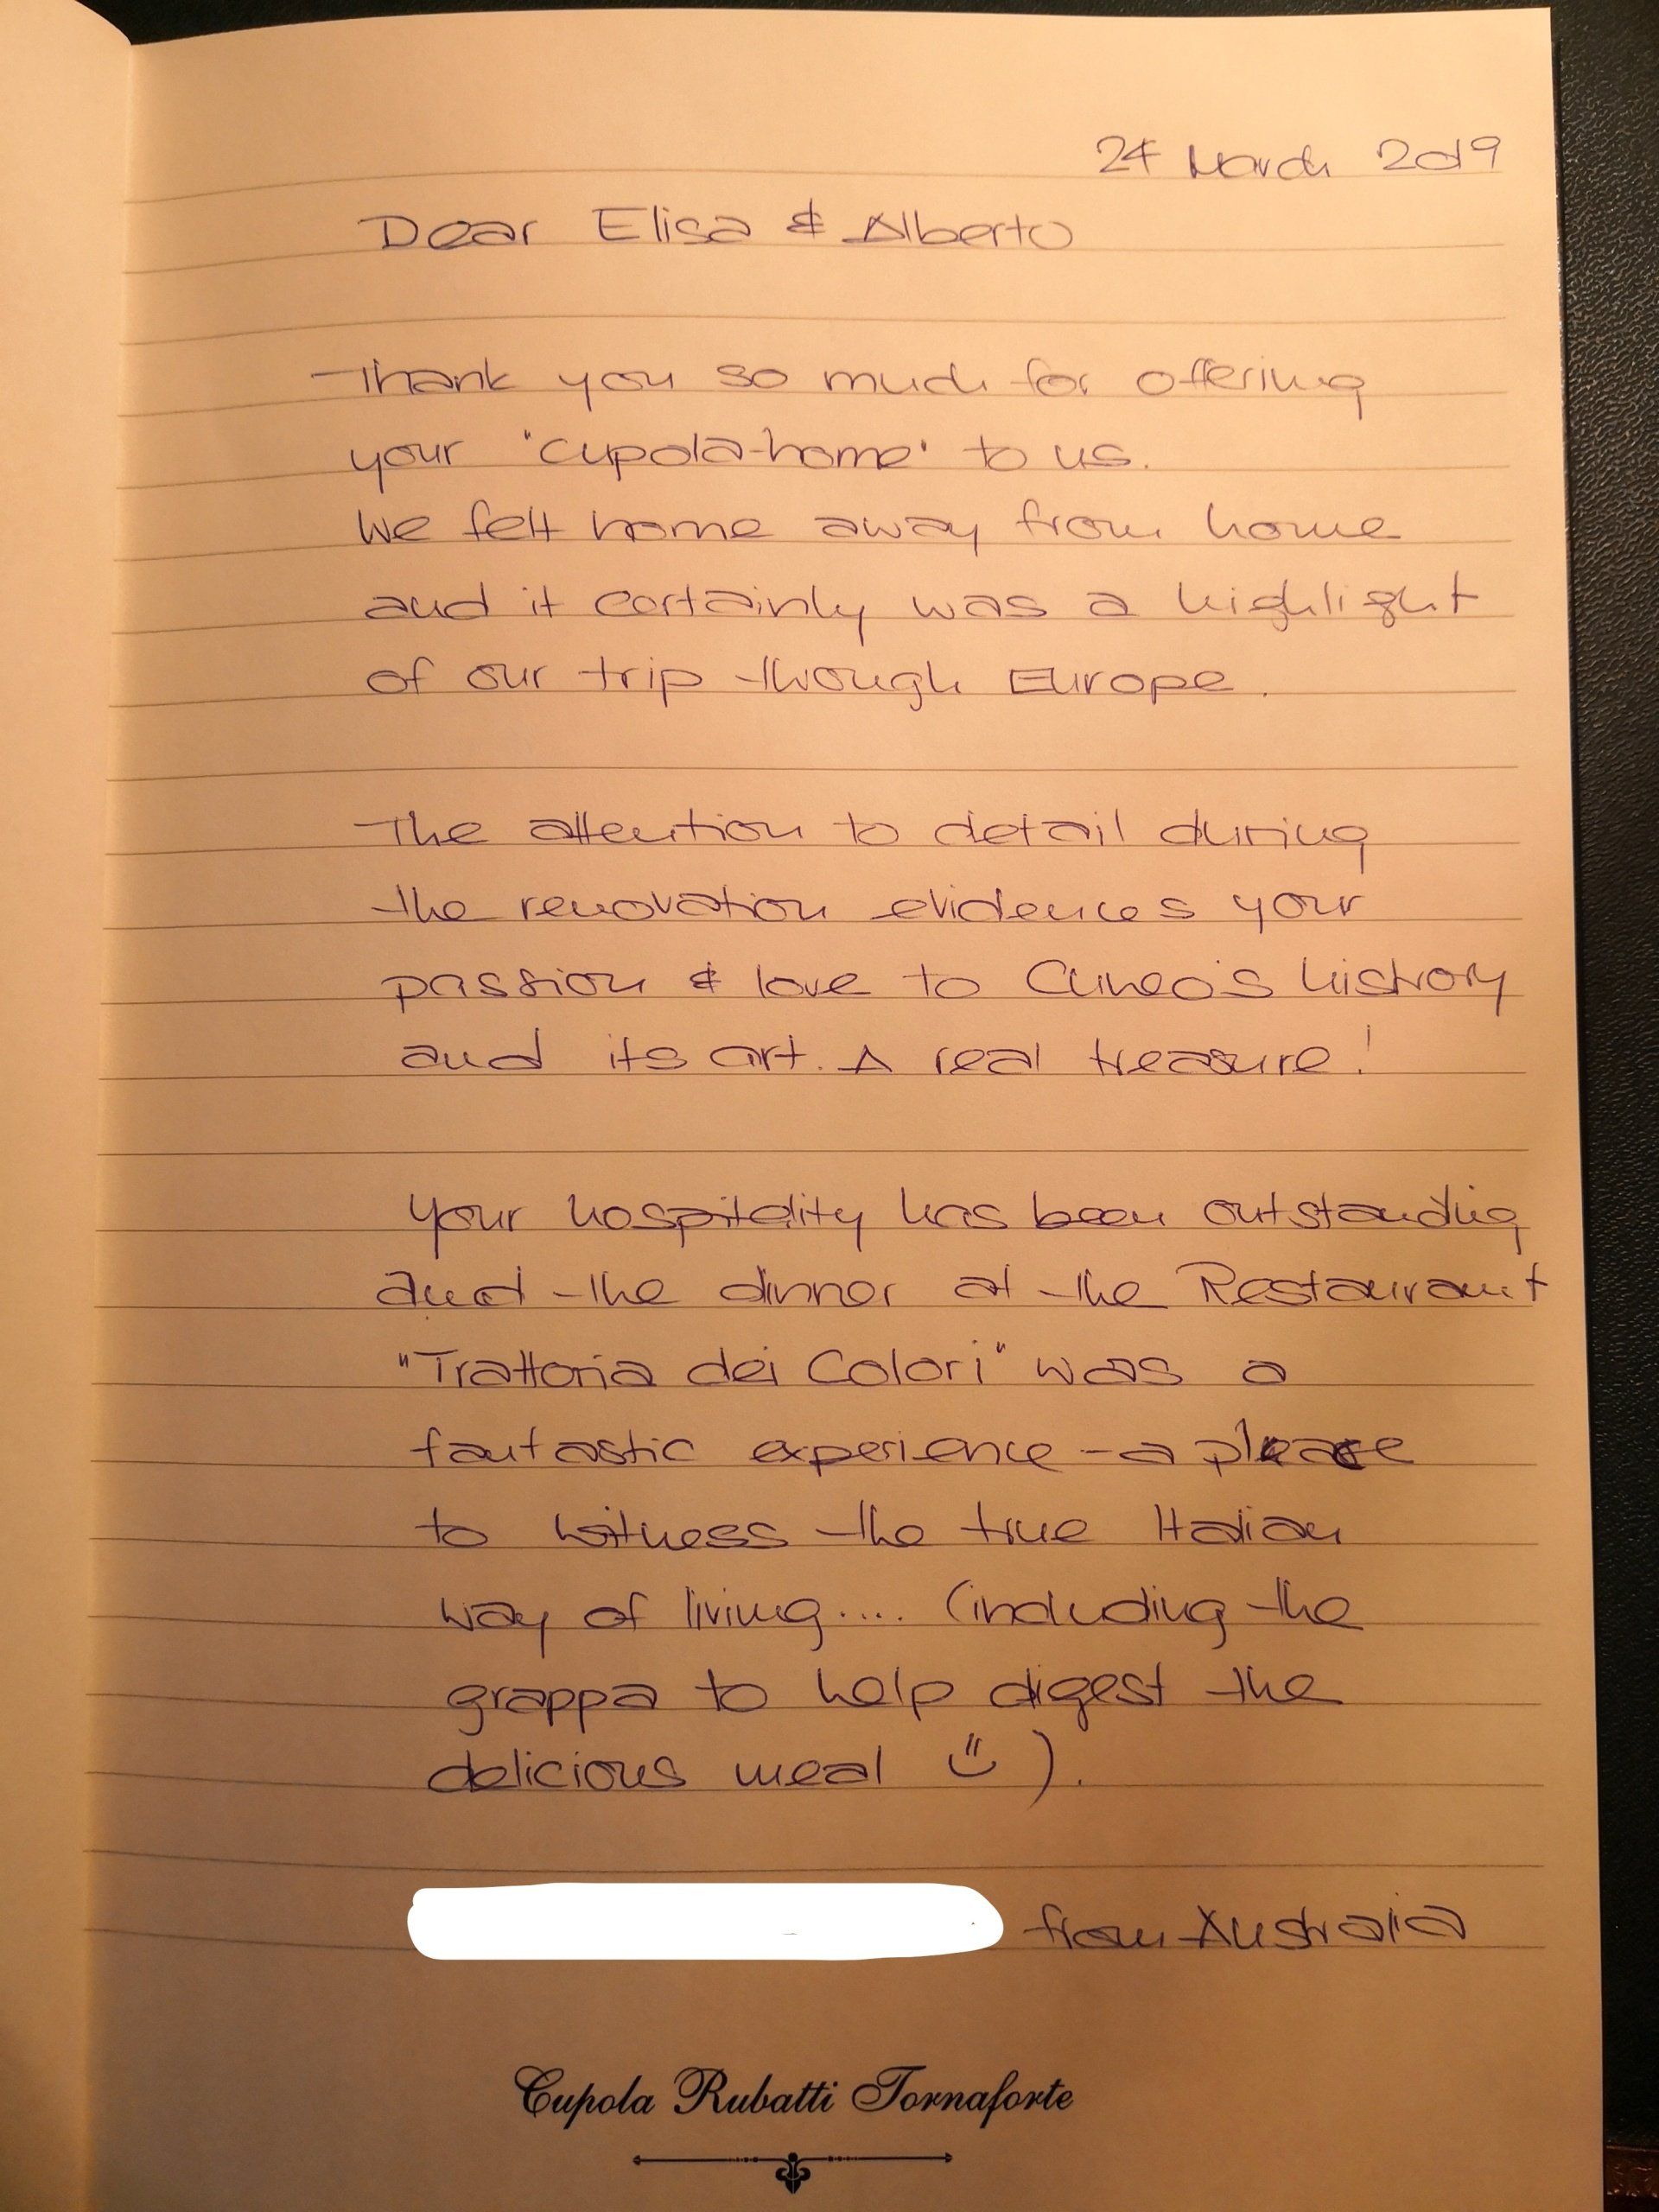 24 March 2019
Dear Elisa & Alberto
Thank you so much for offering
your 'cupola-home' to us.
We felt home away from home
and it certainly was a highlight
of our trip through Europe.
The attention to detail during
the renovation evidences your
passion & love to Cuneo's history
and its art. A real treasure!
Your hospitality has been outstanding
and the dinner at the Restaurant
"Trattoria dei Colori" was a
fantastic experience - a place
to witness the true Italian
way of living.... (including the
grappa to help digest the
delicious meal ).
from Australia
Cupola Rubatti Tornaforte